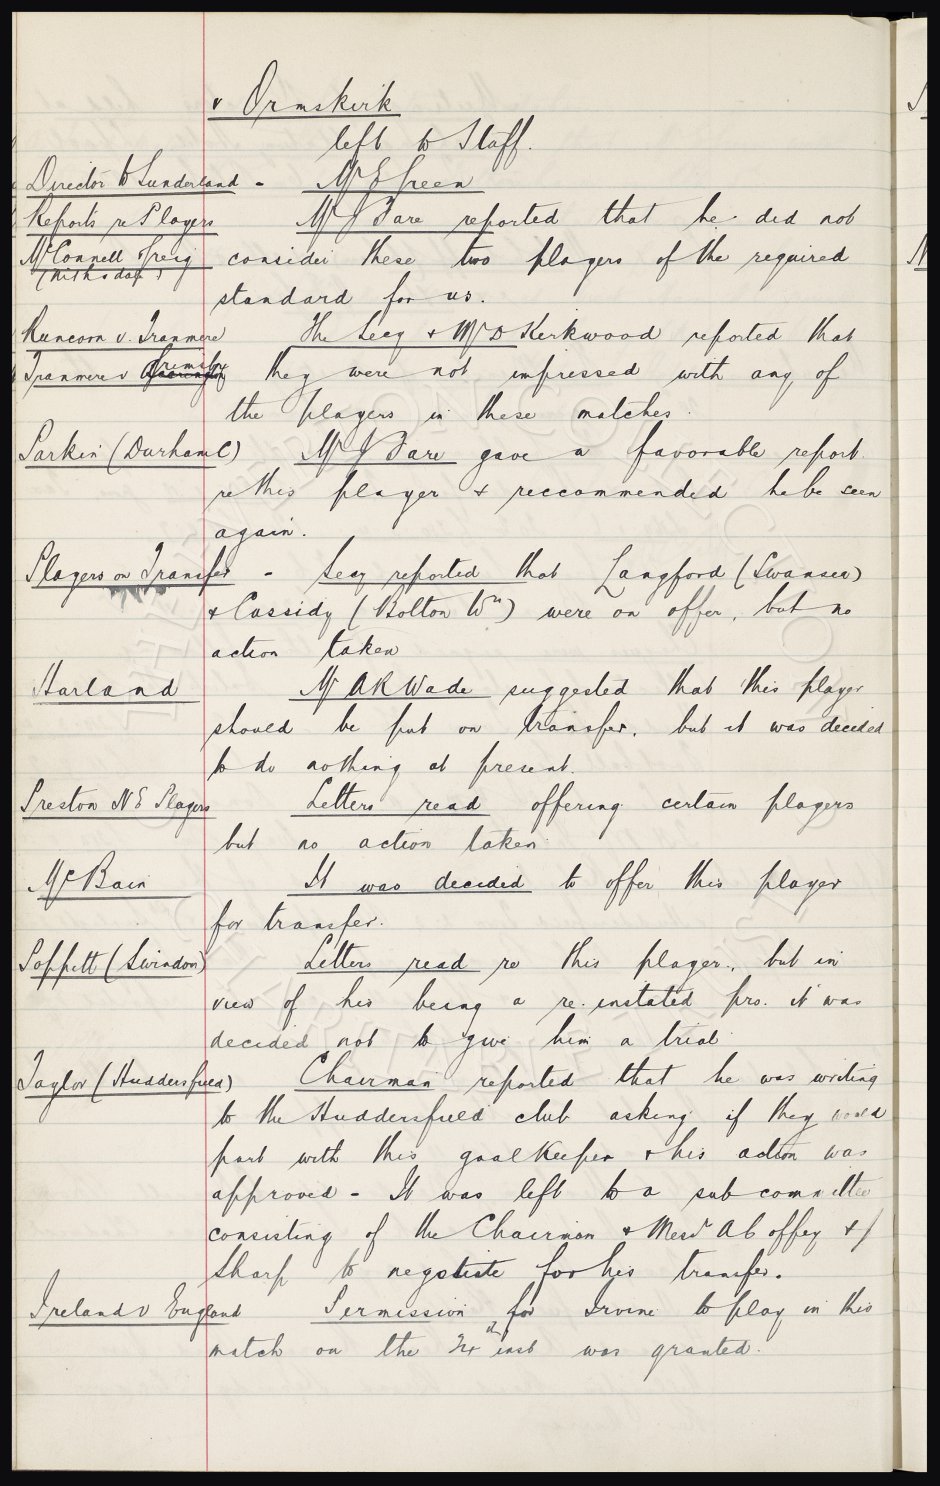 v Ormskirk
left to Staff.
Director to Sunderland - Mr E Green
Reports re Players Mr J Fare reported that he did not
McConnell & Greig consider these two players of the required
(Nithsdale)
standard for us.
Runcorn v. Tranmere The Secy & Mr D Kirkwood reported that
Grimsby
Tranmere v Accrington they were not impressed with any of
the players in these matches.
Parkin (Durham C) Mr J Fare gave a favorable report
re this player & reccommended he be seen
again.
Players on Transfer - Secy reported that Langford (Swansea)
& Cassidy (Bolton Wrs) were on offer, but no
action taken
Harland Mr A R Wade suggested that this player
should be put on transfer, but it was decided
to do nothing at present.
Preston N E Players Letters read offering certain players
but no action taken
McBain It was decided to offer this player
for transfer.
Poppitt (Swindon) Letters read re this player, but in
view of his being a re-instated pro. it was
decided not to give him a trial
Taylor (Huddersfield) Chairman reported that he was writing
to the Huddersfield club asking if they would
part with this goalkeeper & his action was
approved - It was left to a sub committee
consisting of the Chairman & Messrs A Coffey & J
Sharp to negotiate for his transfer.
Ireland v England Permission for Irvine to play in this
match on the inst was granted.